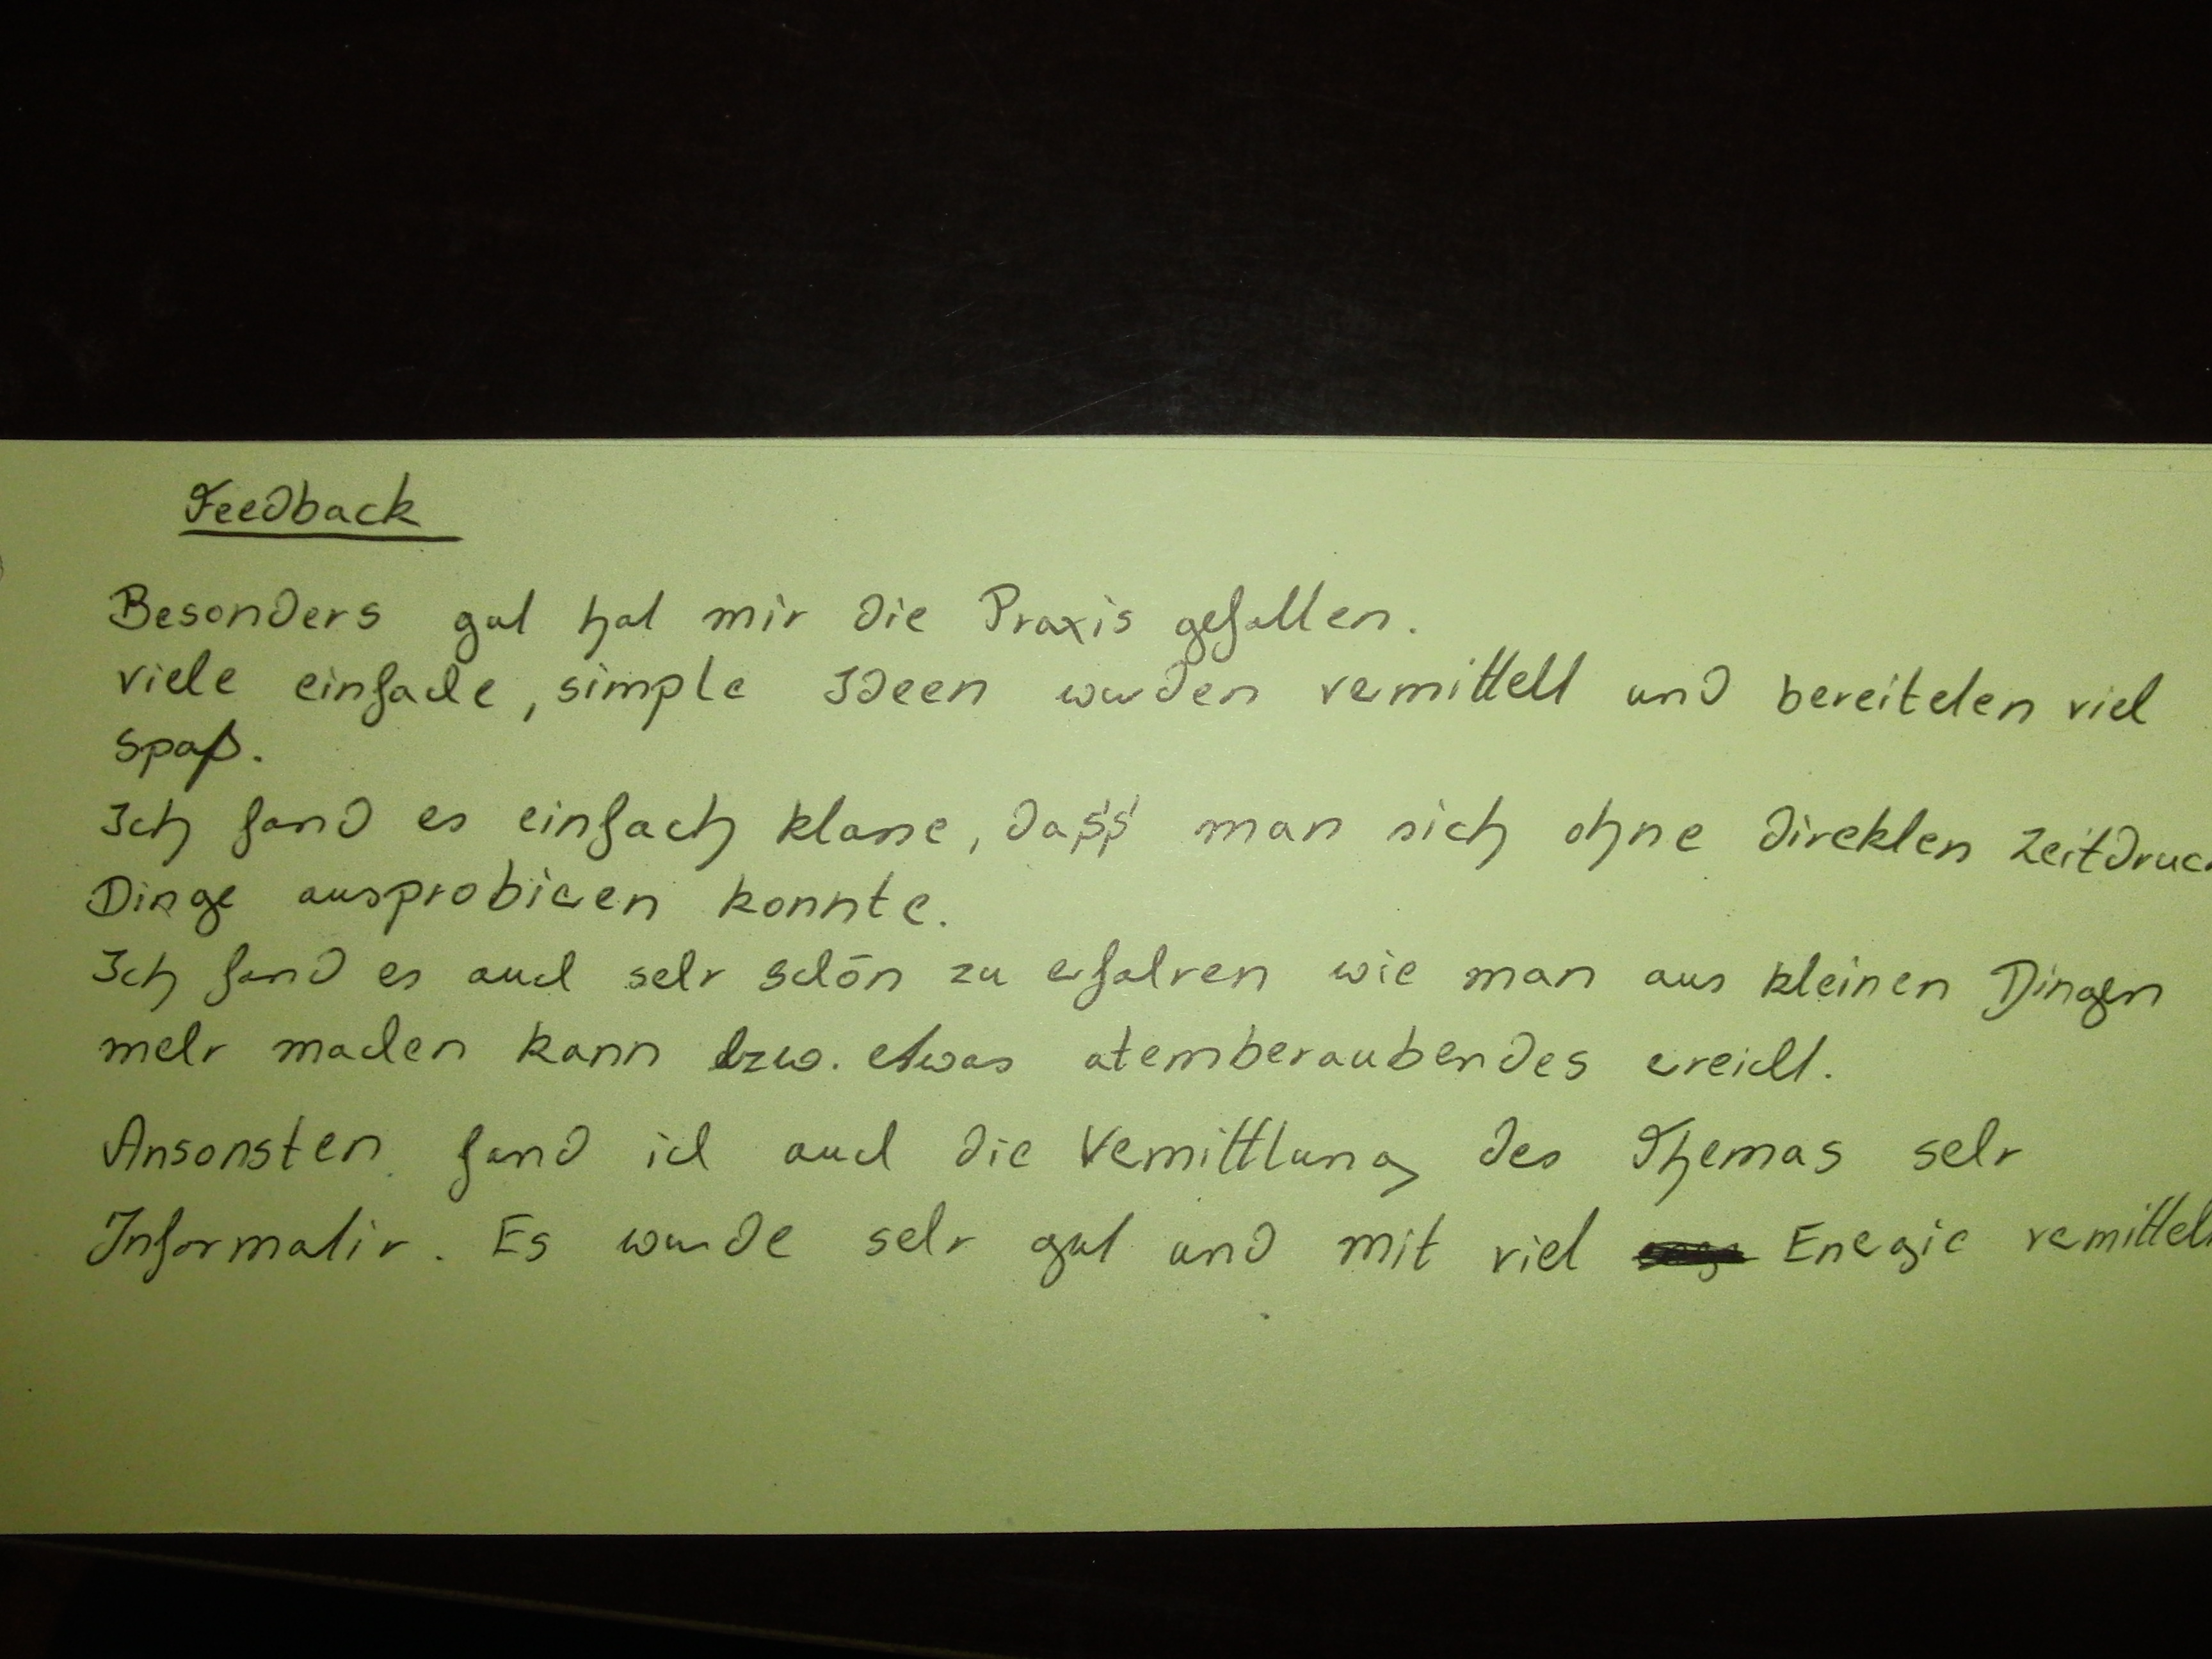 Feedback
Besonders gut hat mir die Praxis gefallen.
viele einfache, simple Ideen wurden vermittelt und bereiteten viel
Spaß.
Ich fand es einfach klasse, dass man sich ohne direkten Zeitdruck
Dinge ausprobieren konnte.
Ich fand es auch sehr schön zu erfahren wie man aus kleinen Dingen
mehr machen kann bzw. etwas atemberaubendes erreicht.
Ansonsten fand ich auch die Vermittlung des Themas sehr
Informativ. Es wurde sehr gut und mit viel Energie vermittelt